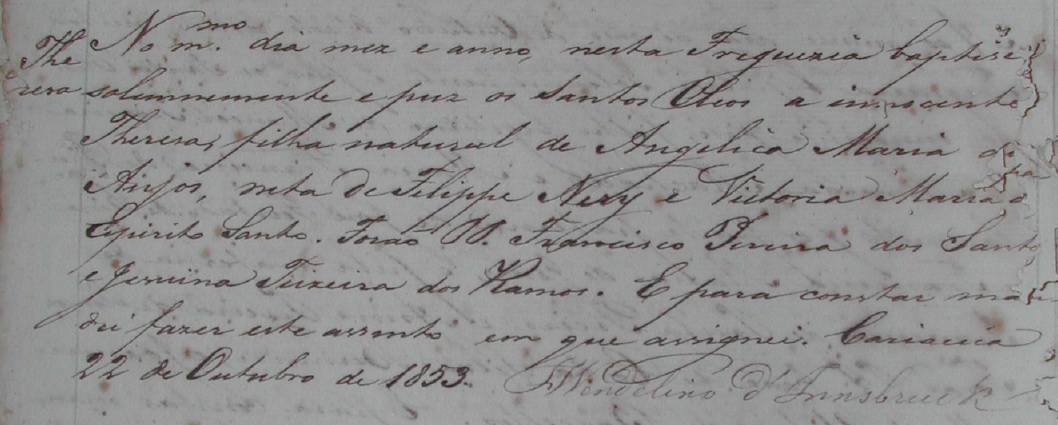 The
reza
No m.mo dia mez e anno, nesta Freguezia baptisei
solemnemente e puz os Santos Oleos a innocente
Thereza, filha natural de Angelica Maria dos
Anjos, neta de Filippe Nery e Victoria Maria do
Espirito Santo. Forão P.P. Francisco Pereira dos Santos
e Jesuina Teixeira dos Ramos. E para constar man
dei fazer este assento em que assignei. Cariacica
22 de Outubro de 1853. Fr Wendelino d'Innsbruck